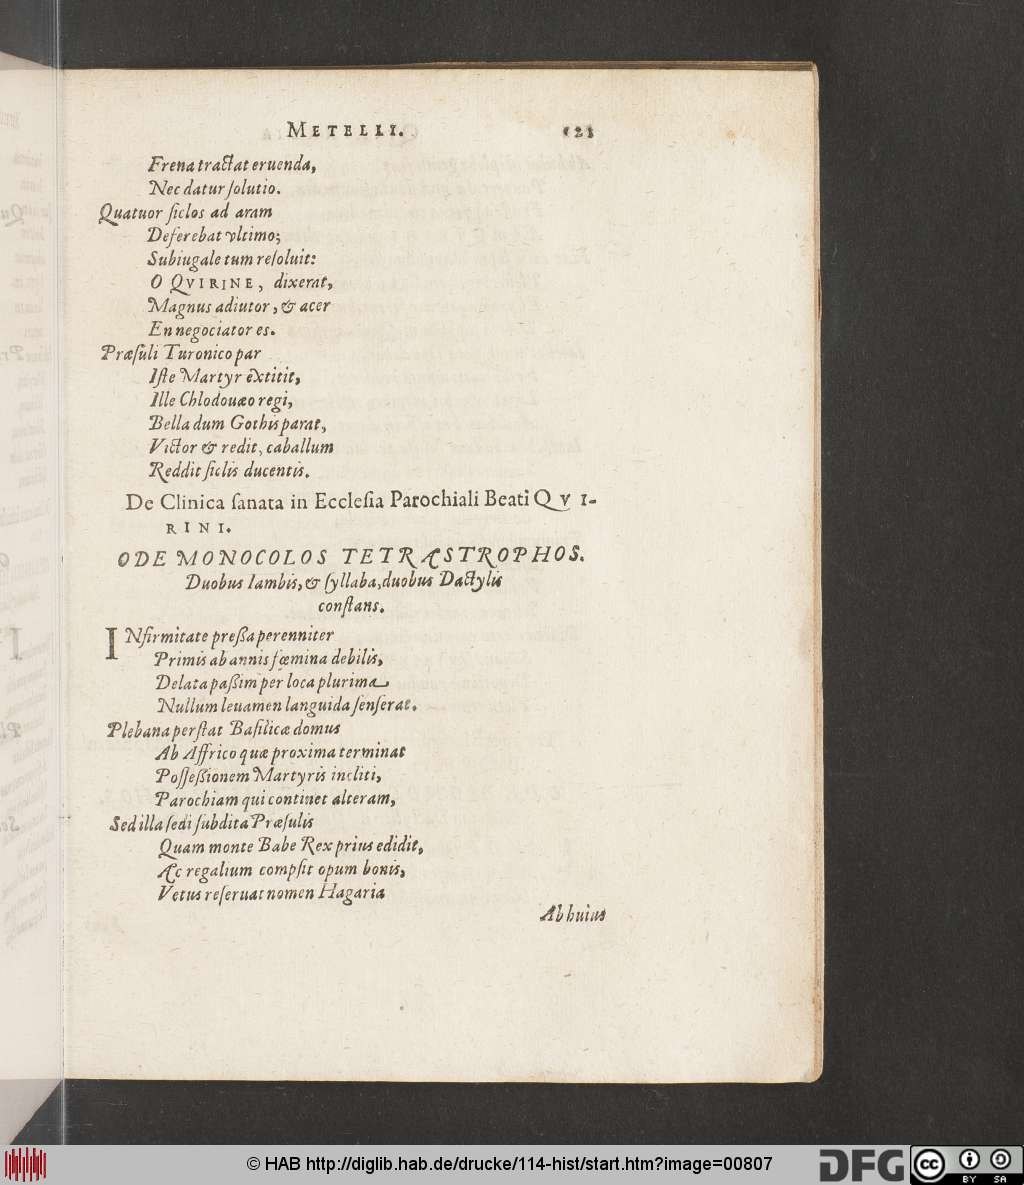 METELLI. 121
Frena tractat eruenda,
Nec datur ſolutio.
Quatuor ſiclos ad aram
Deferebat vltimo;
Subiugale tum reſoluit:
O QVIRINE, dixerat,
Magnus adiutor, & acer
En negociator es.
Præſuli Turonico par
Iſte Martyr extitit,
Ille Chlodouæo regi,
Bella dum Gothis parat,
Victor & redit, caballum
Reddit ſiclis ducentis.
De Clinica ſanata in Eccleſia Parochiali Beati QVI-
RINI.
ODE MONOCOLOS TETRASTROPHOS.
Duobus Iambis, & ſyllaba, duobus Dactylis
conſtans.
INfirmitate preßa perenniter
Primis ab annis fœmina debilis,
Delata paßim per loca plurima
Nullum leuamen languida ſenſerat.
Plebana perſtat Baſilicæ domus
Ab Affrico quæ proxima terminat
Poſſeßionem Martyris incliti,
Parochiam qui continet alteram,
Sed illa ſedi ſubdita Præſulis
Quam monte Babe Rex prius edidit,
Ac regalium compſit opum bonis,
Vetus reſeruat nomen Hagaria
Ab huius
© HAB http://diglib.hab.de/drucke/114-hist/start.htm?image=00807
DFG
cc BY SA